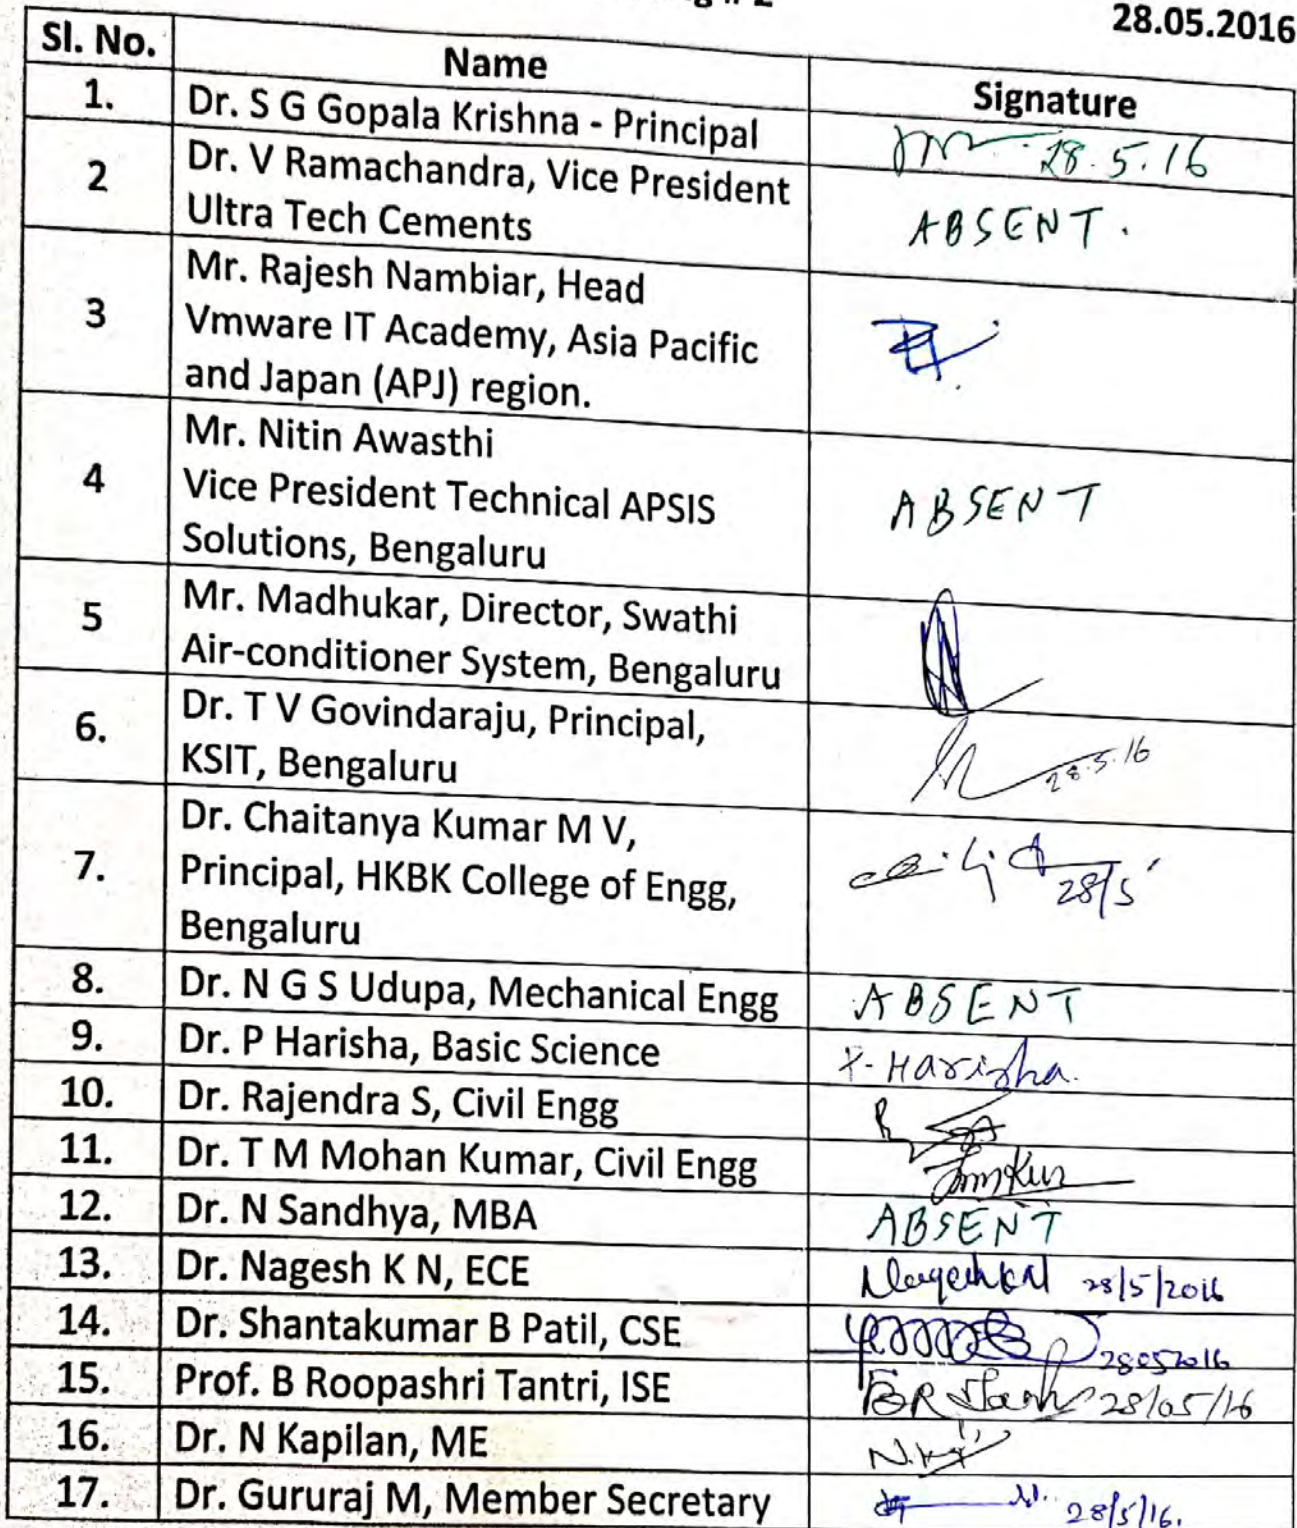 # 2
28.05.2016
Sl. No. Name Signature
1. Dr. S G Gopala Krishna - Principal 28.5.16
2 Dr. V Ramachandra, Vice President
Ultra Tech Cements ABSENT.
Mr. Rajesh Nambiar, Head
3 Vmware IT Academy, Asia Pacific
and Japan (APJ) region.
Mr. Nitin Awasthi
4 Vice President Technical APSIS ABSENT
Solutions, Bengaluru
5 Mr. Madhukar, Director, Swathi
Air-conditioner System, Bengaluru
6. Dr. T V Govindaraju, Principal,
KSIT, Bengaluru 28.5.16
Dr. Chaitanya Kumar M V,
7. Principal, HKBK College of Engg, 28/5
Bengaluru
8. Dr. N G S Udupa, Mechanical Engg ABSENT
9. Dr. P Harisha, Basic Science P. Harisha.
10. Dr. Rajendra S, Civil Engg
11. Dr. T M Mohan Kumar, Civil Engg
12. Dr. N Sandhya, MBA ABSENT
13. Dr. Nagesh K N, ECE 28/5/2016
14. Dr. Shantakumar B Patil, CSE 28052016
15. Prof. B Roopashri Tantri, ISE 28/05/16
16. Dr. N Kapilan, ME
17. Dr. Gururaj M, Member Secretary 28/5/16.